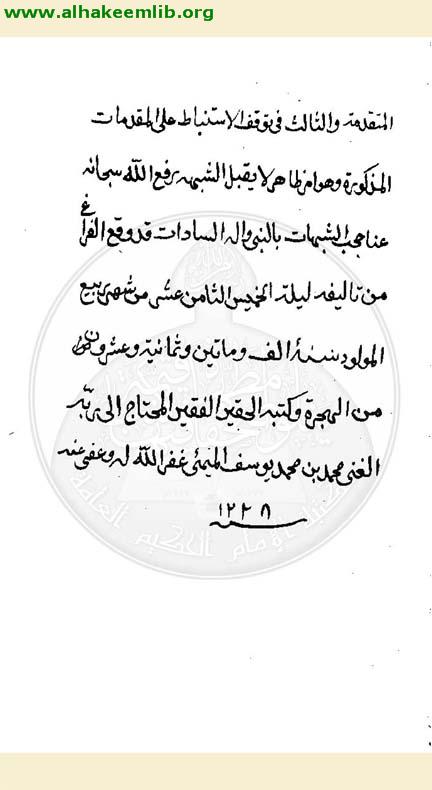 www.alhakeemlib.org
المتقدمة والثالث في توقف الاستنباط على المقدمات
المذكورة وهو امر ظاهر لا يقبل الشبهه رفع الله سبحانه
عنا حجب الشبهات بالنبي واله السادات قد وقع الفراغ
من تاليفه ليلة الخميس الثامن عشر من شهر ربيع
المولود سنة الف وماتين وثمانية وعشرون
من الهجرة وكتبه الحقير الفقير المحتاج الى ربه
الغني محمد بن محمد يوسف غفر الله له وعفى عنه
١٢٢٨